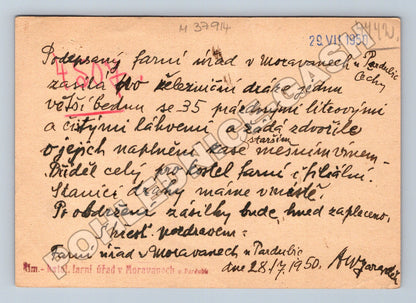 M 37914
29.VII.1950
Podepsaný farní úřad v Moravanech u Pardubic
Čechy
zasílá po železniční dráze jednu
větší bednu se 35 prázdnými litrovými
a čistými láhvemi a žádá zdvořile
starším
o jejich naplnění mešním vínem.
Příděl celý pro kostel farní i filiální.
Stanici dráhy máme v místě.
Po obdržení zásilky bude hned zaplaceno.
S pozdravem:
Farní úřad v Moravanech u Pardubic
dne 28/7. 1950.
Řím.-katol. farní úřad v Moravanech u Pardubic